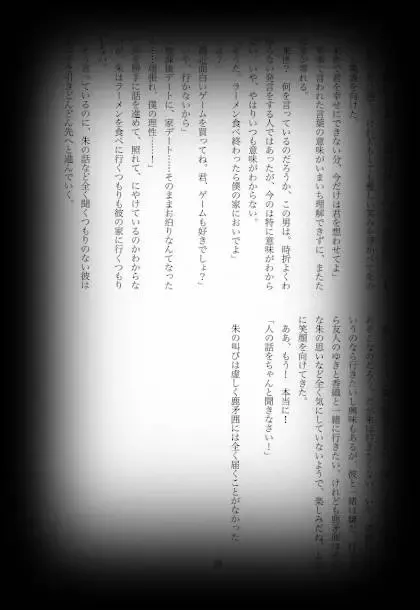 を向けた。
君を幸せにできない分、今だけは君を想わせてよ」
言われた言葉の意味がいまいち理解できずに、またた
来世？　何を言っているのだろうか、この男は。時折よくわ
らない発言をする人ではあったが、今のは特に意味がわから
いや、やはりいつも意味がわからない。
った、ラーメン食べ終わったら僕の家においでよ」
？」
最近面白いゲームを買ってね。君、ゲームも好きでしょ？」
や、行かないから」
放課後デートに、家デート……そのままお泊りなんてなった
……頑張れ、僕の理性……！」
手に話を進めて、照れて、にやけているのかわからな
朱はラーメンを食べに行くつもりも彼の家に行くつもり
っているのに、朱の話など全く聞くつもりのない彼は
引きどんどん先へと進んでいく。
いうのなら行きたいし興味もあるが、彼と一緒は嫌だ。行
ら友人のゆきと香織と一緒に行きたい。けれども鹿矛囲は
な朱の思いなど全く気にしていないようで、楽しみだね、と
に笑顔を向けてきた。
ああ、もう！　本当に！
「人の話をちゃんと聞きなさい！」
朱の叫びは虚しく鹿矛囲には全く届くことがなかった